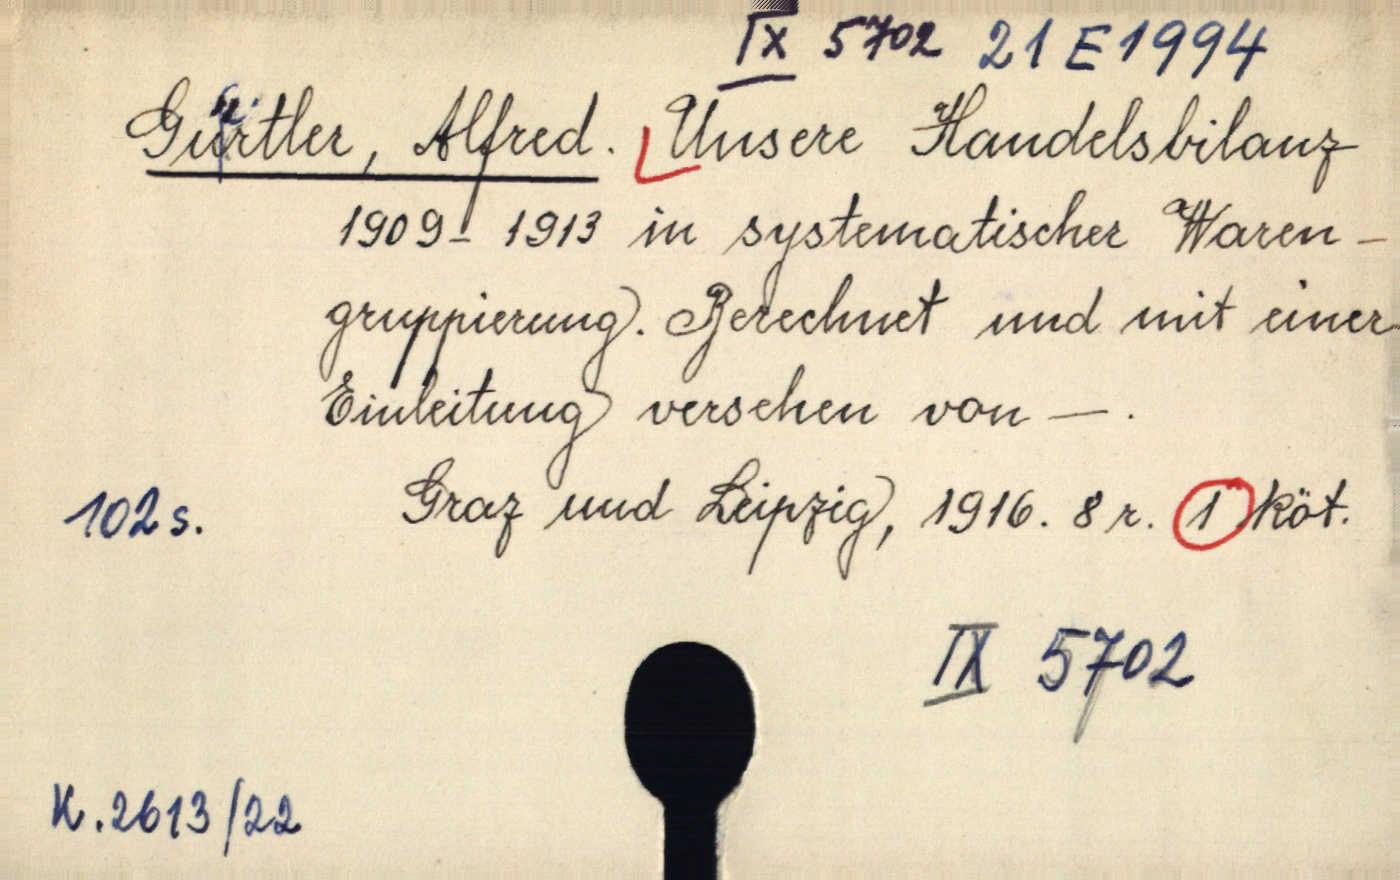 IX 5702 21 E 1994
Gürtler, Alfred. Unsere Handelsbilanz
1909-1913 in systematischer Waren-
gruppierung. Berechnet und mit einer
Einleitung versehen von —.
102 s. Graz und Leipzig, 1916. 8 r. 1 köt.
IX 5702
K. 2613/22